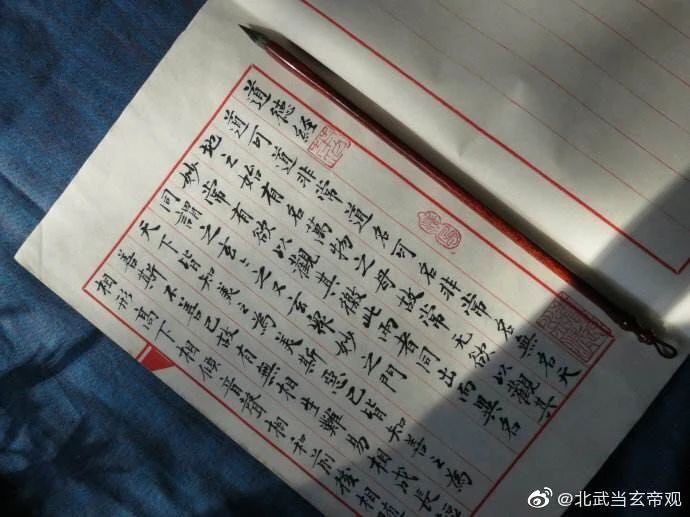 道德經
道可道非常道名可名非常名無名天
地之始有名萬物之母故常无欲以觀其
妙常有欲以觀其徼此兩者同出而異名
同謂之玄〻之又玄衆妙之門
天下皆知美之為美斯惡已皆知善之為
善斯不善已故有無相生難易相成長短
相形高下相傾音聲相和前後相隨
@北武当玄帝观